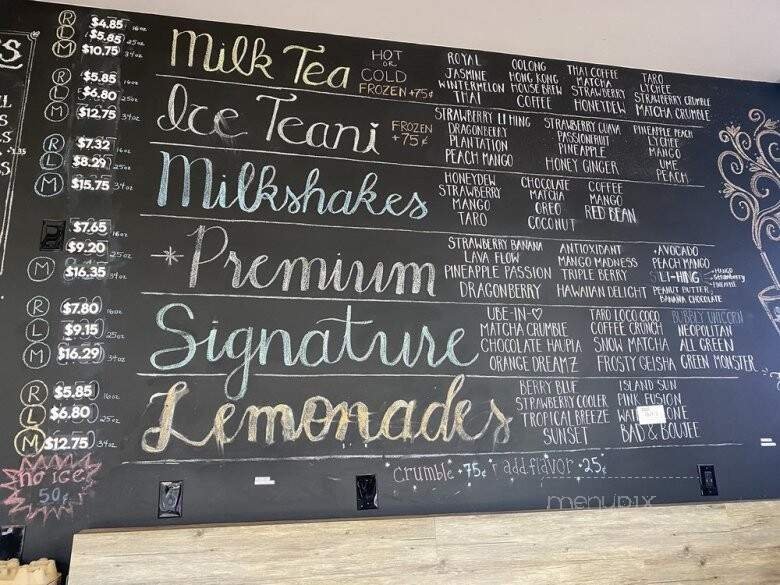 R $4.85 16oz
L $5.85 25oz
M $10.75 34oz
Milk Tea
HOT
OR
COLD
FROZEN +75¢
ROYAL OOLONG THAI COFFEE TARO
JASMINE HONG KONG MATCHA LYCHEE
WINTERMELON HOUSE BREW STRAWBERRY STRAWBERRY CRUMBLE
THAI COFFEE HONEYDEW MATCHA CRUMBLE
R $5.85 16oz
L $6.80 25oz
M $12.75 34oz
Ice Teani
FROZEN
+75¢
STRAWBERRY LI HING STRAWBERRY GUAVA PINEAPPLE PEACH
DRAGONBERRY PASSIONFRUIT LYCHEE
PLANTATION PINEAPPLE MANGO
PEACH MANGO HONEY GINGER UME
PEACH
R $7.32 16oz
L $8.29 25oz
M $15.75 34oz
Milkshakes
HONEYDEW CHOCOLATE COFFEE
STRAWBERRY MATCHA MANGO
MANGO OREO RED BEAN
TARO COCONUT
$7.65 16oz
$9.20 25oz
M $16.35 34oz
*Premium
STRAWBERRY BANANA ANTIOXIDANT +AVOCADO
LAVA FLOW MANGO MADNESS PEACH MANGO
PINEAPPLE PASSION TRIPLE BERRY LI-HING -MANGO -Strawberry -PINEAPPLE
DRAGONBERRY HAWAIIAN DELIGHT PEANUT BUTTER
BANANA CHOCOLATE
R $7.80 16oz
L $9.15 25oz
M $16.29 34oz
Signature
UBE-IN-♡ TARO LOCO COCO BUBBLY UNICORN
MATCHA CRUMBLE COFFEE CRUNCH NEOPOLITAN
CHOCOLATE HAUPIA SNOW MATCHA ALL GREEN
ORANGE DREAMZ FROSTY GEISHA GREEN MONSTER
R $5.85 16oz
L $6.80 25oz
M $12.75 34oz
Lemonades
BERRY BLUE ISLAND SUN
STRAWBERRY COOLER PINK FUSION
TROPICAL BREEZE
SUNSET BAD & BOUJEE
no ice
50¢
crumble +75¢ add flavor +25¢
menupix